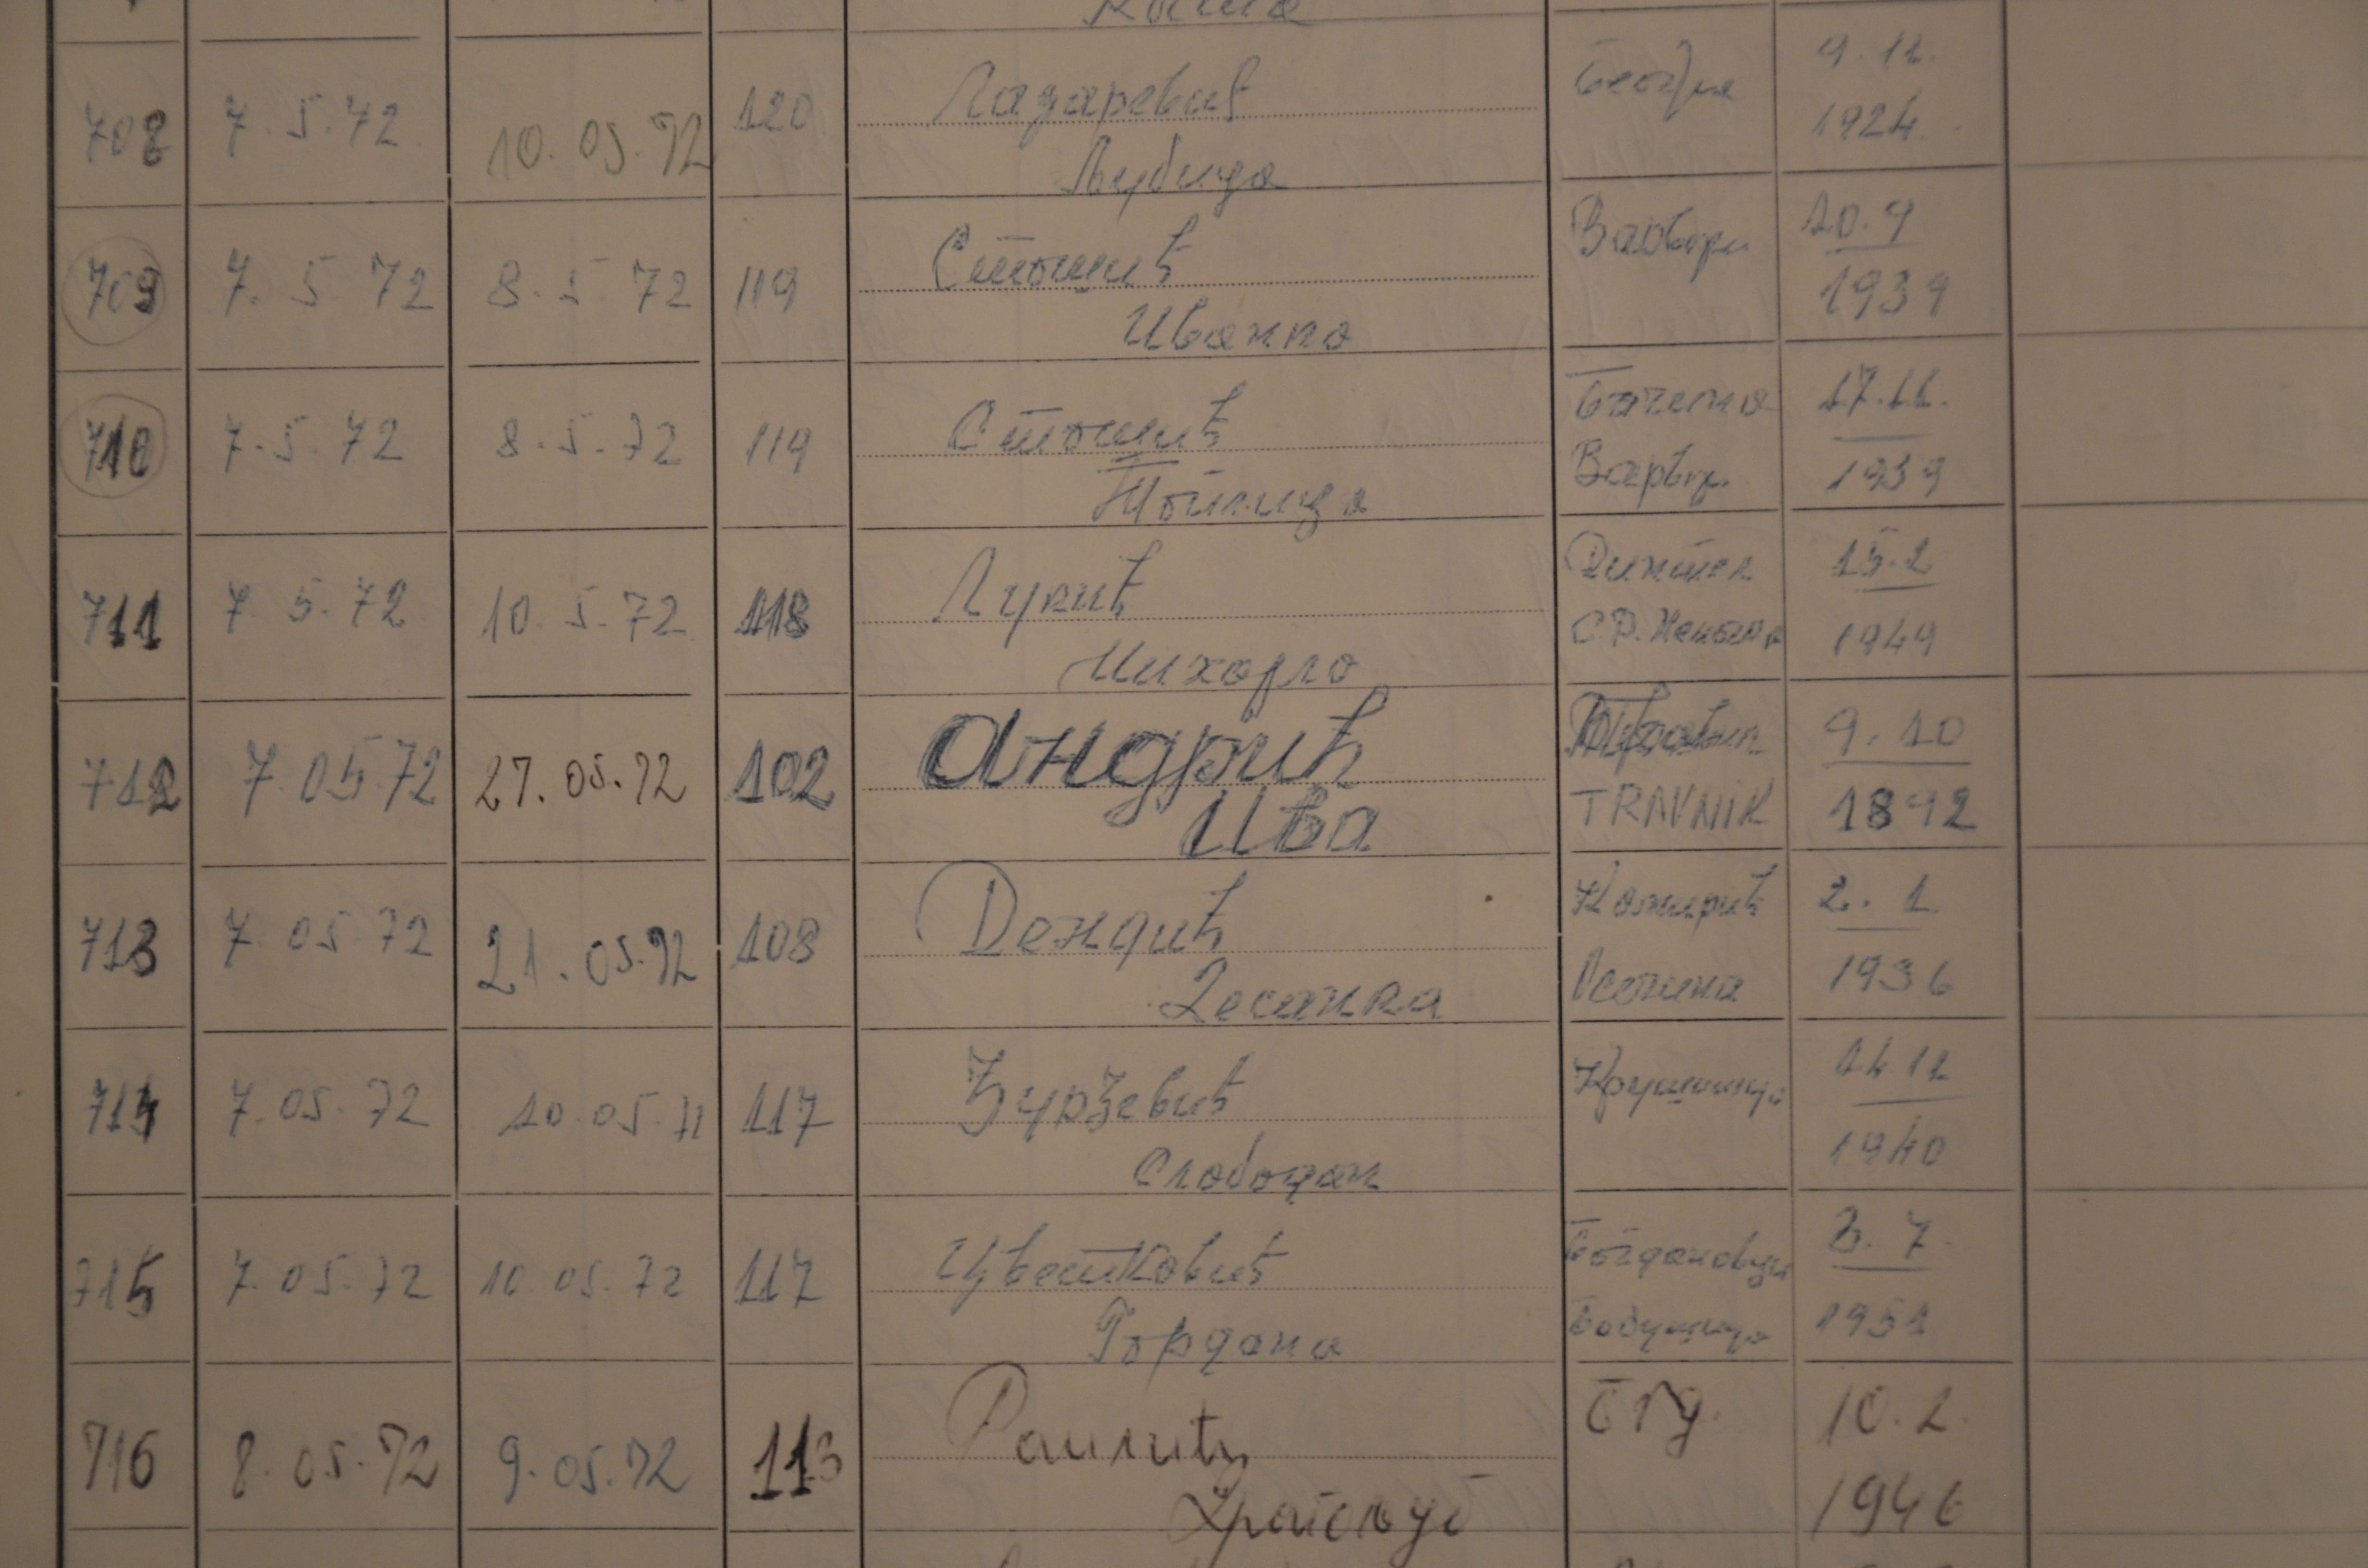 708 7.5.72 10.05.72 120 Лазаревић 9.11.
Љубица 1924.
709 7.5.72 8.5.72 119 Стошић 10.9
Иванка 1939
710 7.5.72 8.5.72 119 Стошић 17.11.
Тојица Варвр. 1939
711 7.5.72 10.5.72 118 Лукић 15.2
Михајло 1949
712 7.05.72 27.05.72 102 Андрић 9.10
Иво TRAVNIK 1892
713 7.05.72 21.05.72 108 2.1.
Десанка Осечина 1936
714 7.05.72 10.05.72 117 Ђурђевић 14.11
Слободан 1940
715 7.05.72 10.05.72 117 Цветковић 3.7.
Гордана 1951
716 8.05.72 9.05.72 113 Раилић Бгд. 10.2.
Драгољуб 1946